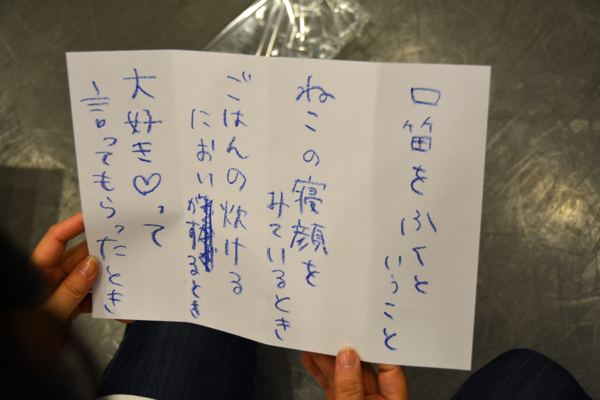 口笛をふくと
いうこと
ねこの寝顔を
みているとき
ごはんの炊ける
においがするとき
大好き♡って
言ってもらったとき